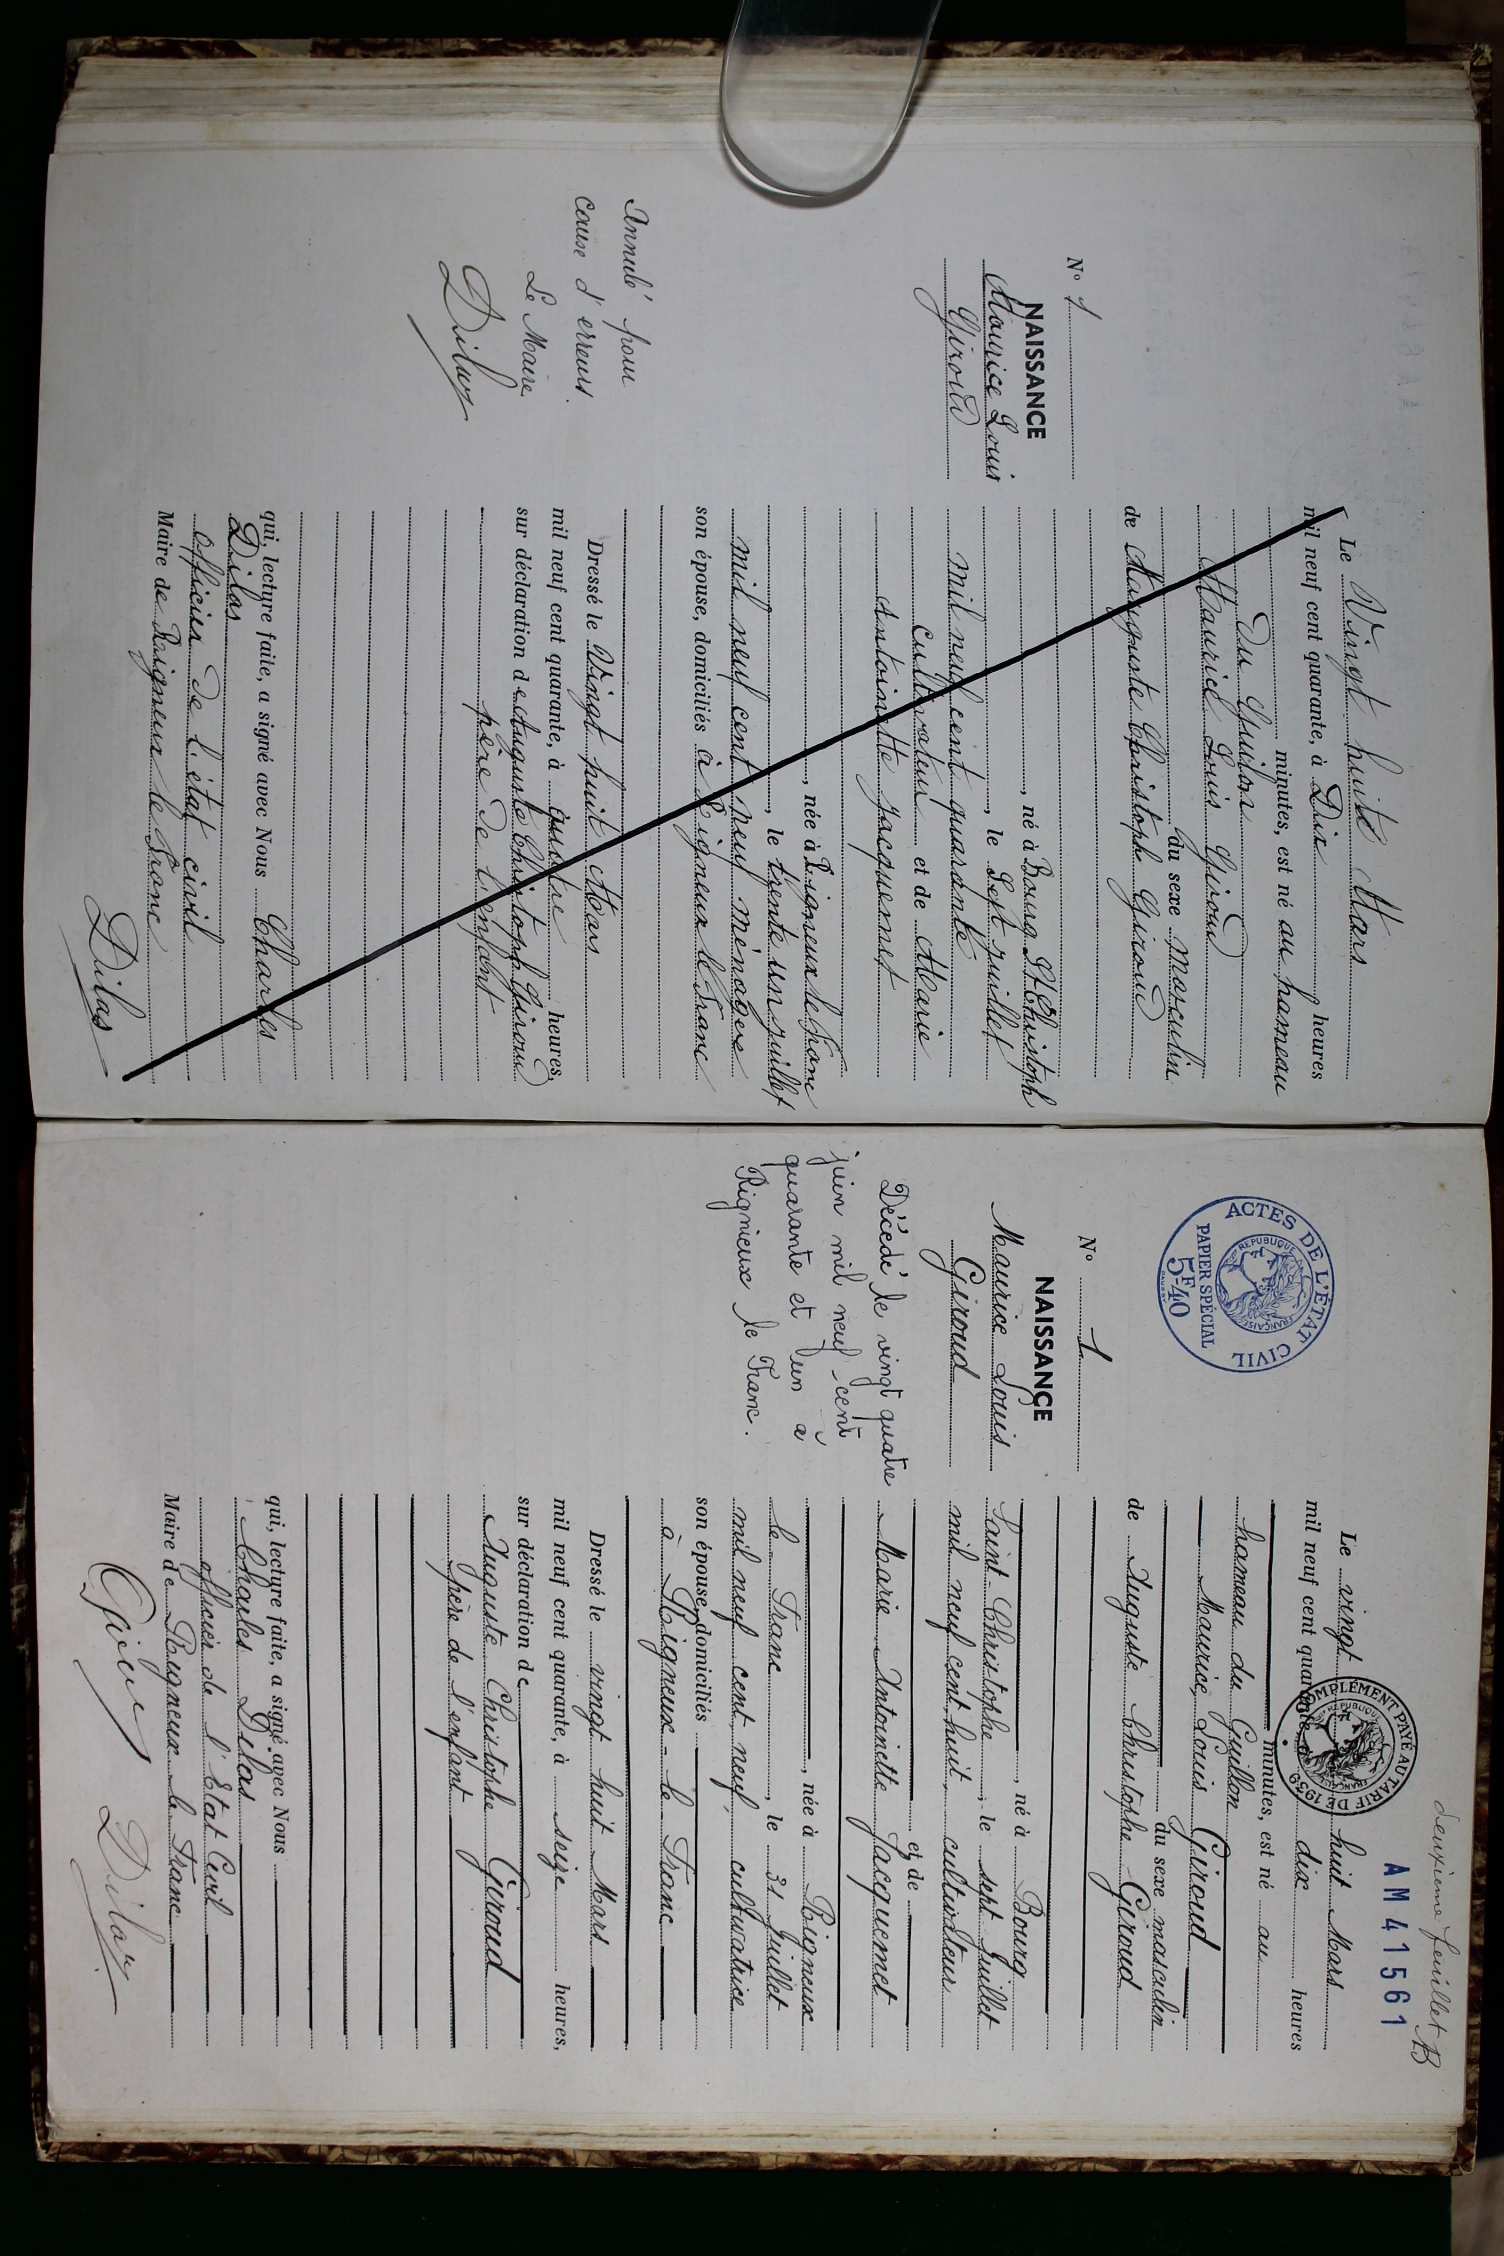 N° 1
NAISSANCE
Maurice Louis
Giroud
Annulé pour
cause d'erreurs.
Le Maire
Dilas
Le Vingt huit Mars
mil neuf cent quarante, à Dix heures
minutes, est né au hameau
Du Guilon
Maurice Louis Giroud
du sexe Masculin
de Auguste Christoph Giroud
, né à Bourg St Christoph
, le Sept juillet
mil neuf cent quarante
Cultivateur et de Marie
Antoinette Jacquemet
, née à Rigneux le Franc
, le trente un juillet
mil neuf cent neuf ménagère
son épouse, domiciliés à Rigneux le Franc
Dressé le Vingt huit Mars
mil neuf cent quarante, à quatre heures,
sur déclaration de Auguste Christoph Giroud
père de l'enfant
qui, lecture faite, a signé avec Nous Charles
Dilas
officier de l'état civil
Maire de Rigneux le Franc
Dilas
ACTES DE L'ÉTAT CIVIL
RÉPUBLIQUE FRANÇAISE
PAPIER SPÉCIAL
5F40
N° 1
NAISSANCE
Maurice Louis
Giroud
Décédé le vingt quatre
juin mil neuf cent
quarante et un à
Rignieux le Franc.
deuxième feuillet B
AM41561
COMPLÉMENT PAYÉ AU TARIF DE 1939
RÉPUBLIQUE FRANÇAISE
Le vingt huit Mars
mil neuf cent quarante, à dix heures
minutes, est né au
hameau du Guillon
Maurice, Louis Giroud
du sexe masculin
de Auguste Christophe Giroud
, né à Bourg
Saint-Christophe, le sept Juillet
mil neuf cent huit, cultivateur
et de
Marie Antoinette Jacquemet
, née à Rigneux
le Franc, le 31 Juillet
mil neuf cent neuf, cultivatrice
son épouse, domiciliés
à Rigneux-le Franc
Dressé le vingt huit Mars
mil neuf cent quarante, à seize heures,
sur déclaration de
Auguste Christophe Giroud
père de l'enfant
qui, lecture faite, a signé avec Nous
Charles Dilas
officier de l'Etat Civil
Maire de Rigneux-le Franc
Dilas